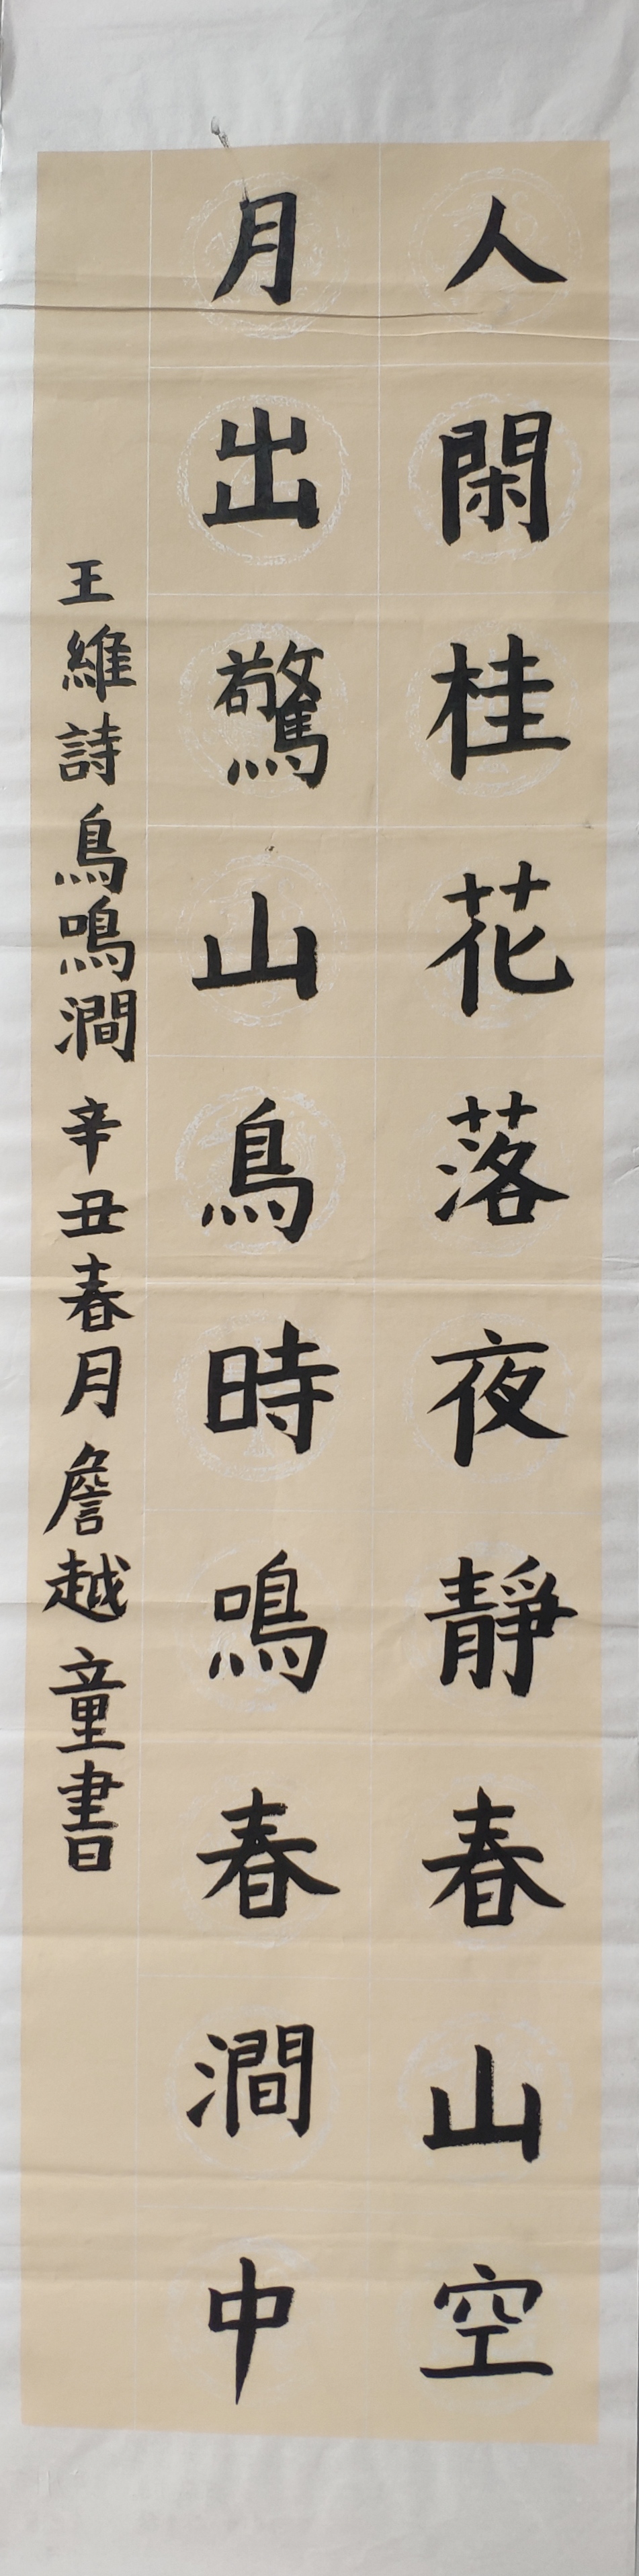 人閑桂花落夜靜春山空
月出驚山鳥時鳴春澗中
王維詩鳥鳴澗辛丑春月詹越童書